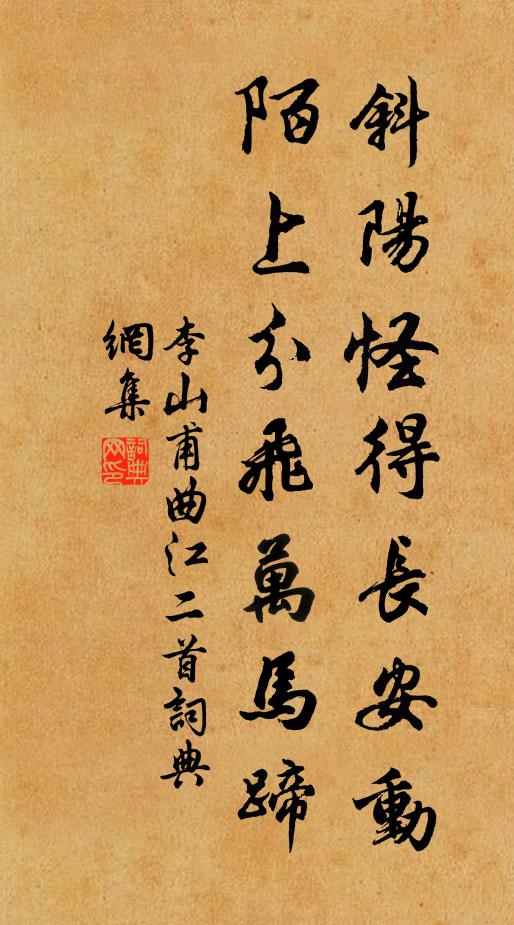 斜陽怪得長安動
陌上分飛萬馬蹄
李山甫曲江二首詞典
網集
詞典
網印